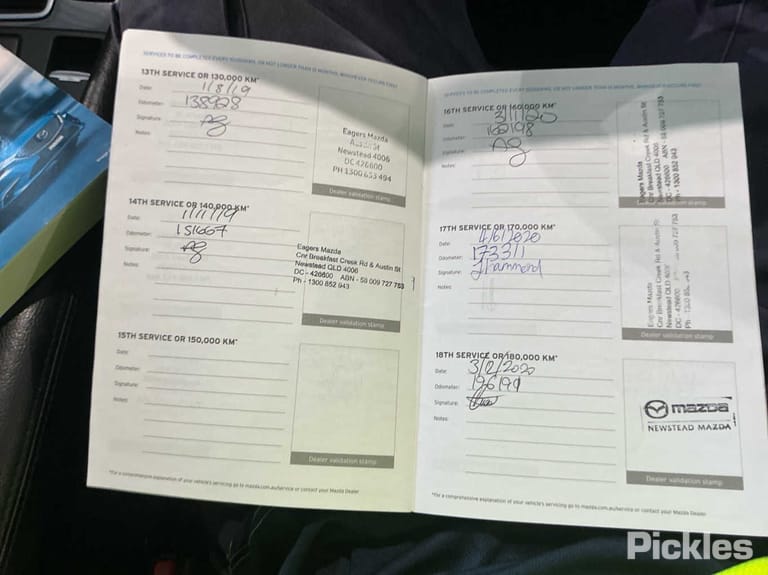 SERVICES TO BE COMPLETED EVERY 10,000KMS, OR NOT LONGER THAN 12 MONTHS, WHICHEVER OCCURS FIRST
13TH SERVICE OR 130,000 KM*
Date: 1/8/19
Odometer: 138928
Signature:
Notes:
Eagers Mazda
Newstead 4006
DC 426600
PH 1300 853 494
Dealer validation stamp
14TH SERVICE OR 140,000 KM*
Date: 1/11/19
Odometer: 151667
Signature:
Notes:
Eagers Mazda
Cnr Breakfast Creek Rd & Austin St
Newstead QLD 4006
DC - 426600 ABN - 58 009 727 753
Ph - 1300 852 943
Dealer validation stamp
15TH SERVICE OR 150,000 KM*
Date:
Odometer:
Signature:
Notes:
Dealer validation stamp
*For a comprehensive explanation of your vehicle's servicing go to mazda.com.au/service or contact your Mazda Dealer
SERVICES TO BE COMPLETED EVERY 10,000KMS, OR NOT LONGER THAN 12 MONTHS, WHICHEVER OCCURS FIRST
16TH SERVICE OR 160,000 KM*
Date:
Odometer: 162198
Signature:
Notes:
Eagers Mazda
Cnr Breakfast Creek Rd & Austin St
Newstead QLD 4006
DC - 426600 ABN - 58 009 727 753
Ph - 1300 852 943
Dealer validation stamp
17TH SERVICE OR 170,000 KM*
Date: 4/6/2020
Odometer: 173311
Signature: Hammond
Notes:
Eagers Mazda
Cnr Breakfast Creek Rd & Austin St
Newstead QLD 4006
DC - 426600 ABN - 58 009 727 753
Ph - 1300 852 943
Dealer validation stamp
18TH SERVICE OR 180,000 KM*
Date:
Odometer: 196191
Signature:
Notes:
mazda
NEWSTEAD MAZDA
Dealer validation stamp
*For a comprehensive explanation of your vehicle's servicing go to mazda.com.au/service or contact your Mazda Dealer
Pickles